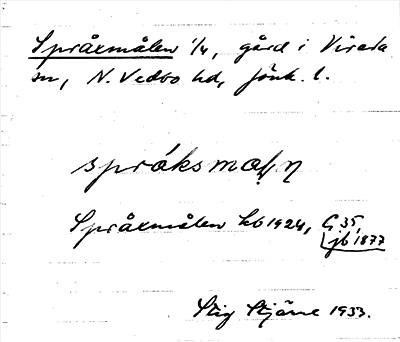 Språxmålen 1/4, gård i Vireda
sn, N. Vedbo hd, Jönk. l.
språksmoḷṇ
Språxmålen kb 1924, G 35,
jb 1877
Stig Stjärne 1933.